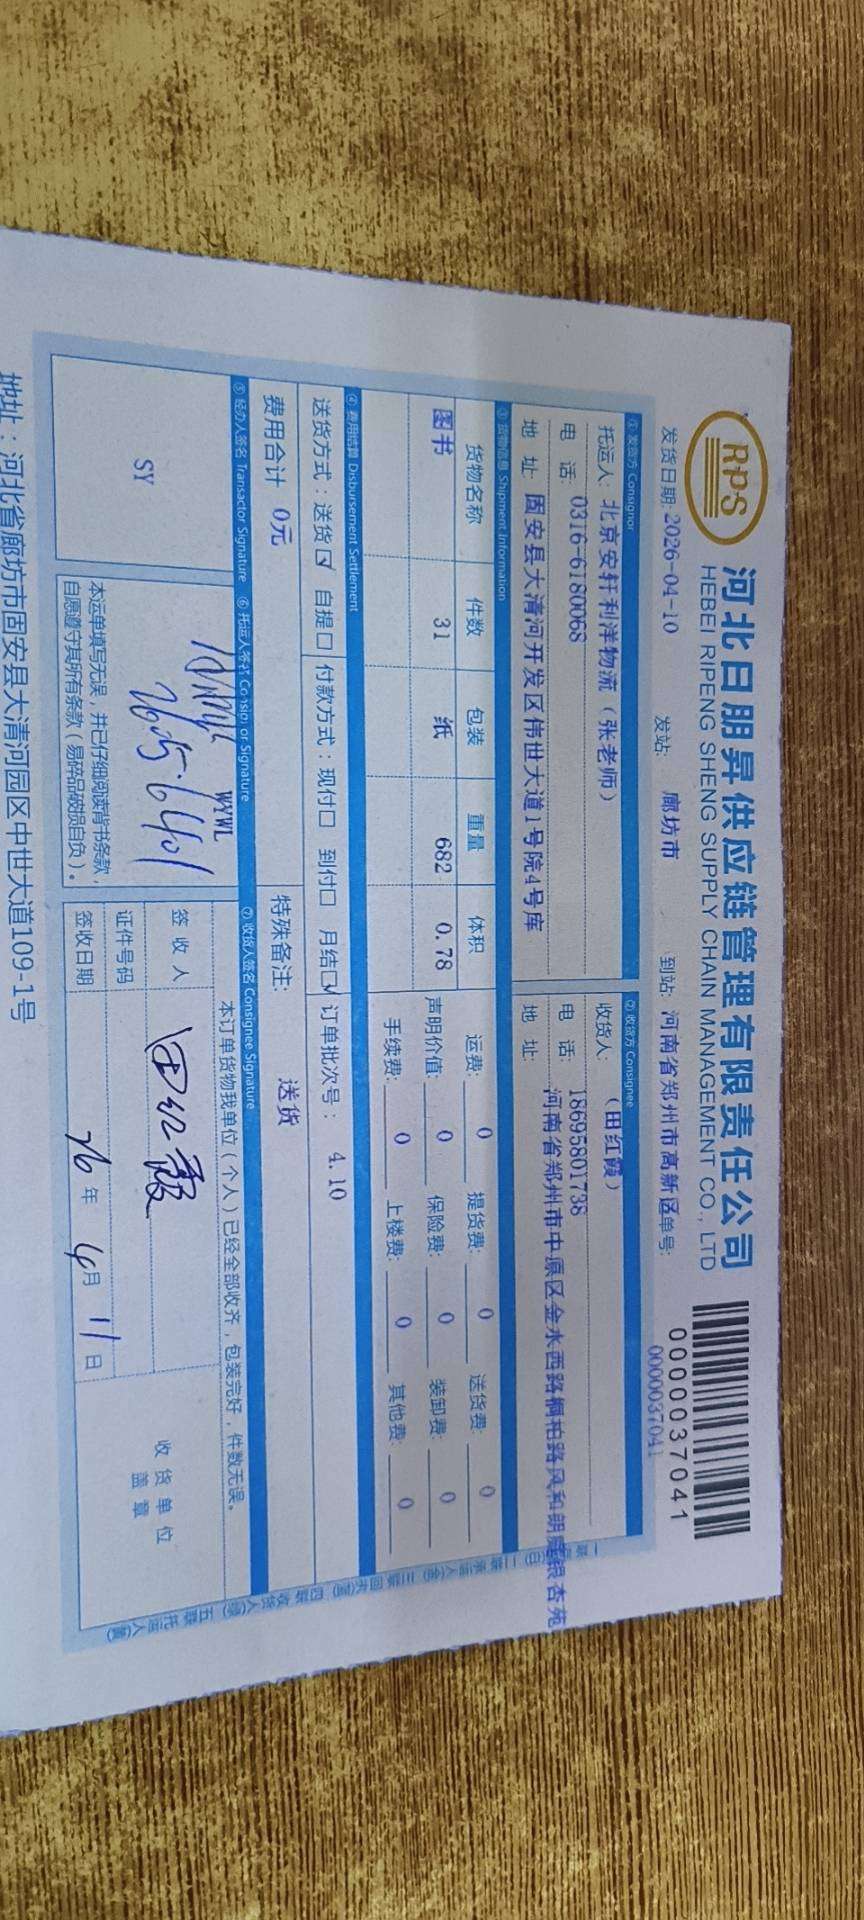 RPS
河北日朋昇供应链管理有限责任公司
HEBEI RIPENG SHENG SUPPLY CHAIN MANAGEMENT CO., LTD
0000037041
发货日期: 2026-04-10 发站: 廊坊市 到站: 河南省郑州市高新区 单号: 0000037041
① 发货方 Consignor ② 收货方 Consignee
托运人: 北京安轩利洋物流（张老师） 收货人: （田红霞）
电 话: 0316-6180068 电 话: 18695801738
地 址: 固安县大清河开发区伟世大道1号院4号库 地 址: 河南省郑州市中原区金水西路桐柏路风和朗庭银杏苑
③ 货物信息 Shipment Information
货物名称 件数 包装 重量 体积 运费: 0 提货费: 0 送货费: 0
图书 31 纸 682 0.78 声明价值: 0 保险费: 0 装卸费: 0
手续费: 0 上楼费: 0 其他费: 0
④ 费用结算 Disbursement Settlement
送货方式：送货☑ 自提□ 付款方式：现付□ 到付□ 月结☑ 订单批次号： 4.10
费用合计 0元 特殊备注: 送货
⑤ 经办人签名 Transactor Signature ⑥ 托运人签名 Consignor Signature ⑦ 收货人签名 Consignee Signature
SY
WYWL
本运单填写无误，并已仔细阅读背书条款，
自愿遵守其所有条款（易碎品破损自负）。
本订单货物我单位（个人）已经全部收齐，包装完好，件数无误。
签 收 人 田红霞
证件号码
签收日期 26 年 4 月 11 日
收 货 单 位
盖 章
地址：河北省廊坊市固安县大清河园区中世大道109-1号